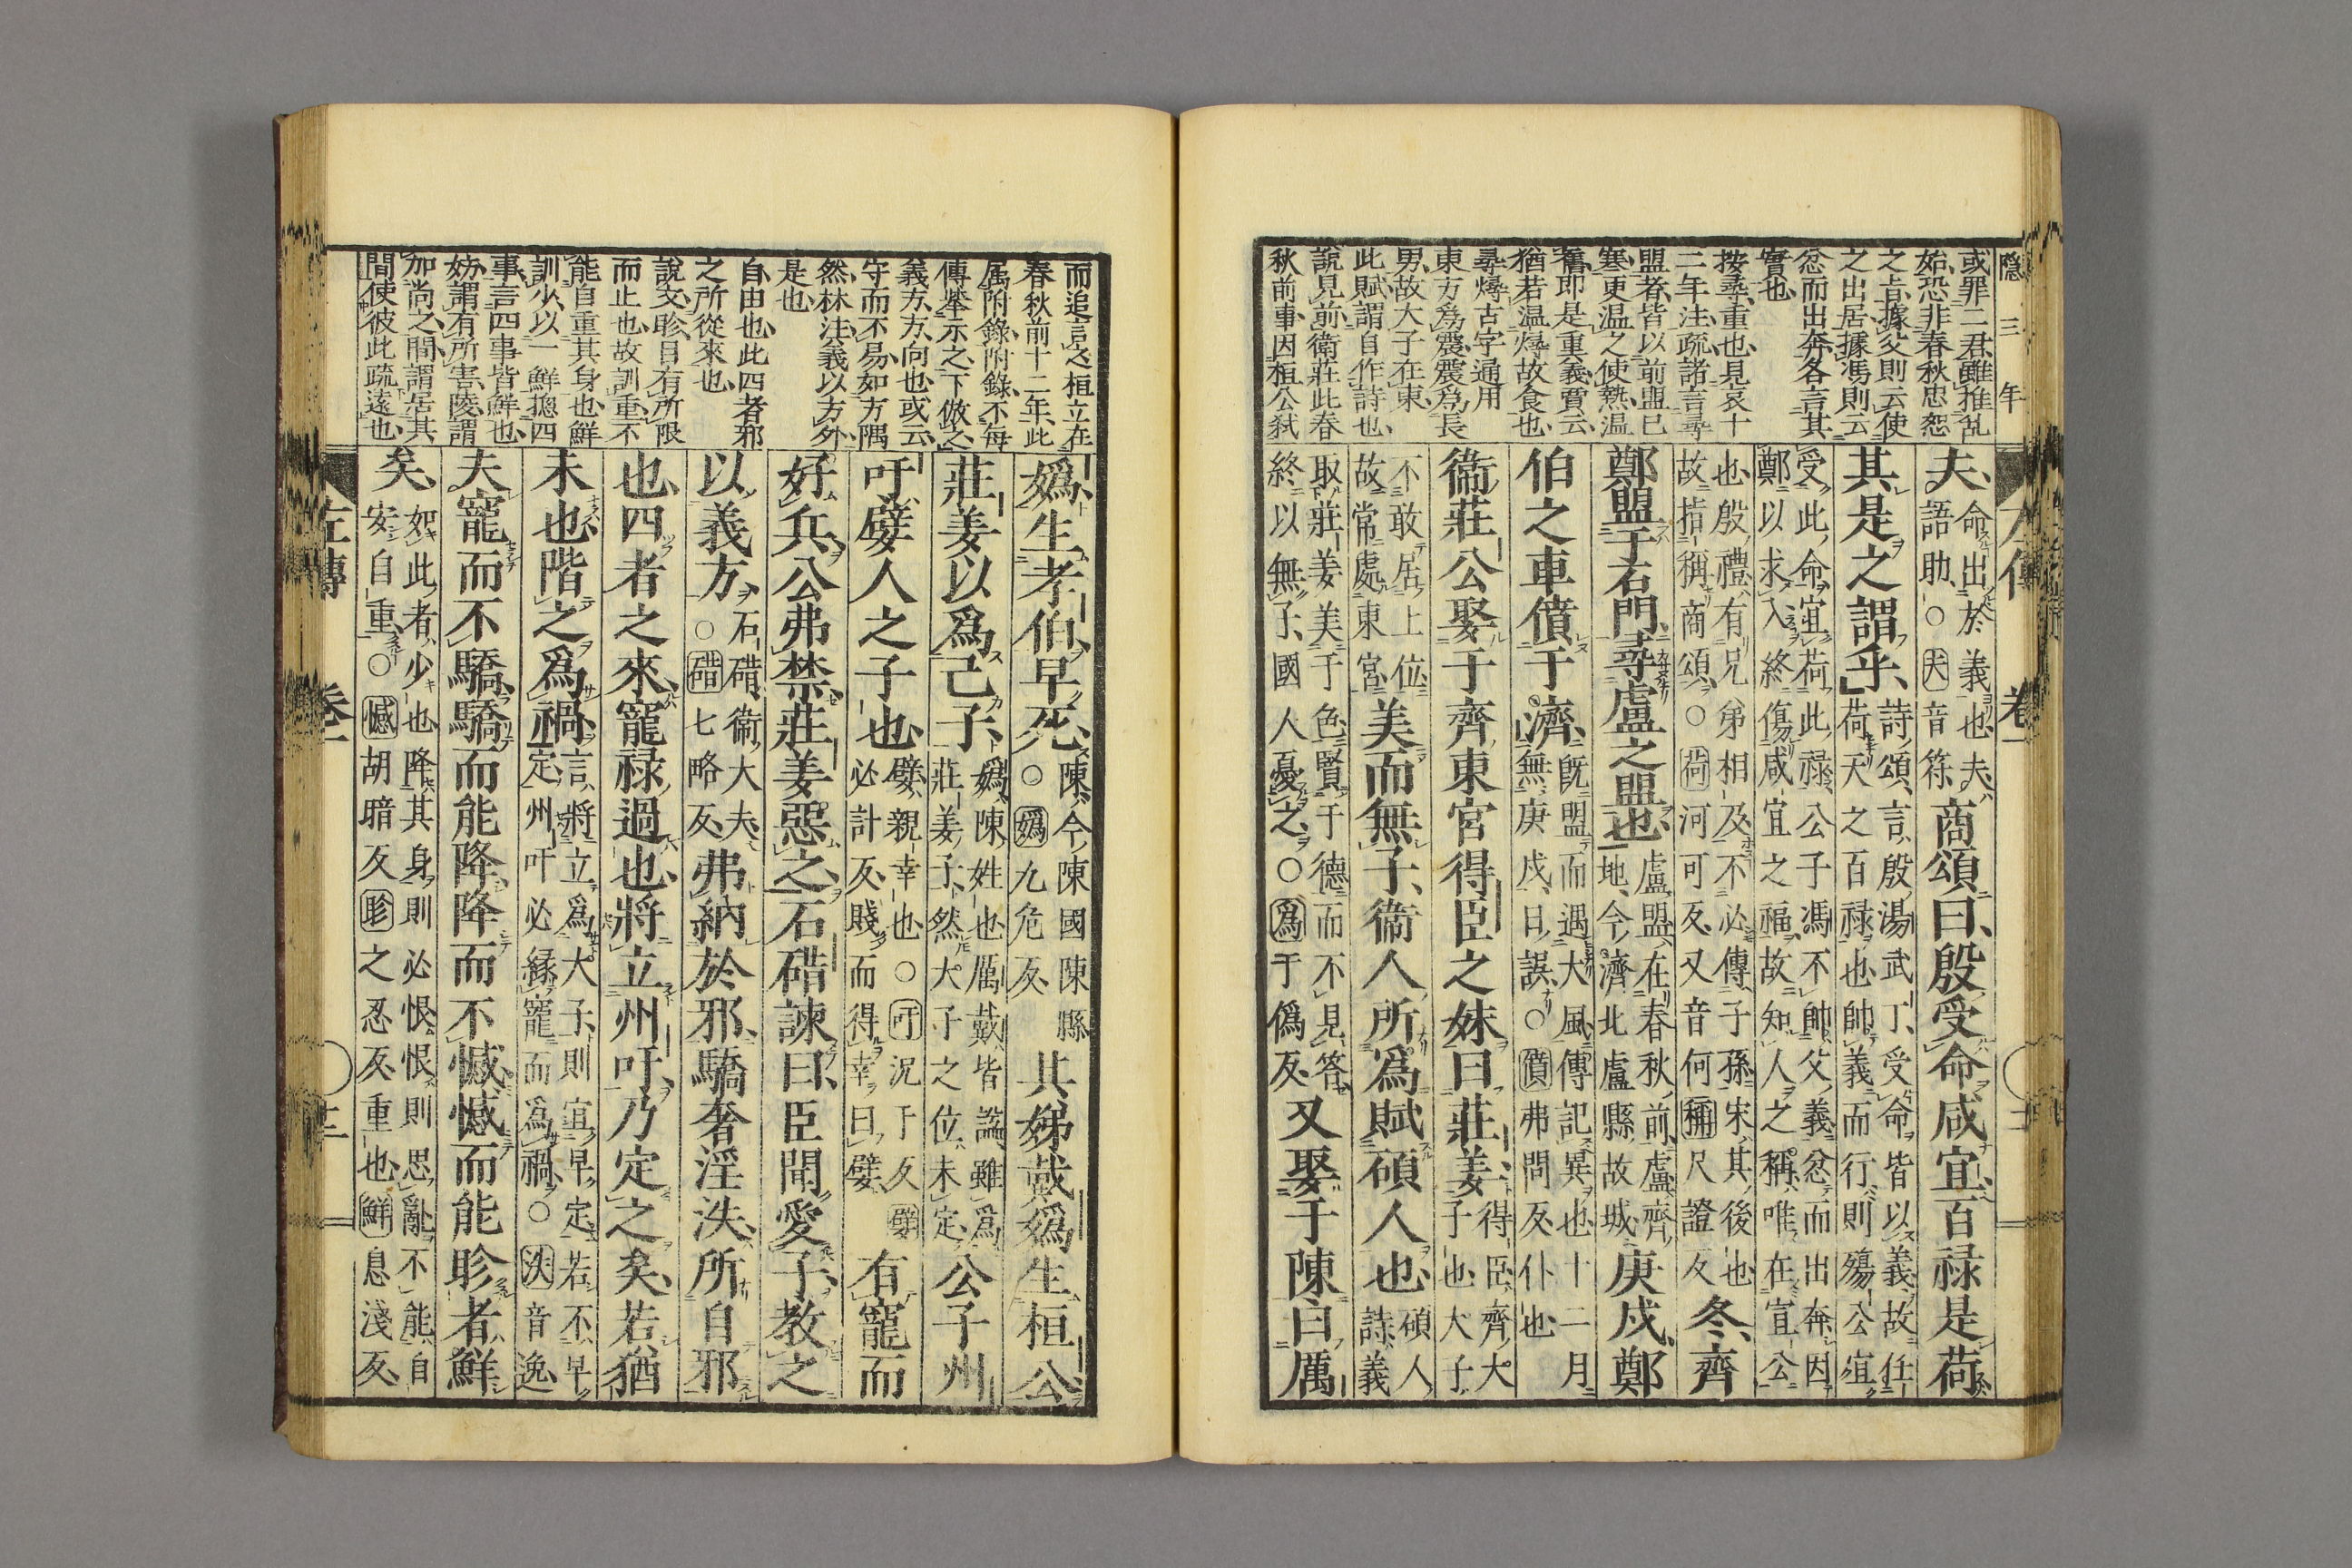 隱三年
或罪二君雖推乱
始恐非春秋忠恕
之㫖據父則云使
之出居據馮則云
忿而出奔各言其
實也
按尋重也見哀十
二年注疏諸言尋
盟者皆以前盟已
寒更温之使熱温
舊即是重義賈云
猶若温燖故食也
尋燖古字通用
東方爲震震爲長
男故大子在東
此賦謂自作詩也
說見前衛莊此春
秋前事因桓公弑
夫命出於義也夫
語助○夫音符商頌曰殷受命咸宜百祿是荷
其是之謂乎詩頌言殷湯武丁受命皆以義故任
荷天之百祿也帥義而行則殤公宜
受此命宜荷此祿公子馮不帥父義忿而出奔因
鄭以求入終傷咸宜之福故知人之稱唯在宣公
也殷禮有兄弟相及不必傳子孫宋其後也
故指稱商頌○荷河可反又音何稱尺證反冬齊
鄭盟于石門尋盧之盟也盧盟在春秋前盧齊
地今濟北盧縣故城庚戌鄭
伯之車僨于濟既盟而遇大風傳記異也十二月
無庚戌日誤○僨弗問反仆也
衞莊公娶于齊東宮得臣之妹曰莊姜得臣齊大
子也大子
不敢居上位
故常處東宮美而無子衞人所爲賦碩人也碩人
詩義
取莊姜美于色賢于德而不見答
終以無子國人憂之○爲于僞反又娶于陳曰厲
而追言之桓立在
春秋前十二年此
属附錄附錄不每
傳舉示之下倣之
義方方向也或云
守而不易如方隅
然林注義以方外
是也
自由也此四者邪
之所從來也
說文眕目有所限
而止也故訓重不
能自重其身也鮮
訓少以一鮮摠四
事言四事皆鮮也
妨謂有所害陵謂
加尚之間謂居其
間使彼此疏遠也
嬀生孝伯早死○陳今陳國陳縣
嬀九危反其娣戴嬀生桓公
莊姜以爲己子嬀陳姓也厲戴皆謚雖爲
莊姜子然大子之位未定公子州
吁嬖人之子也嬖親幸也○吁況于反嬖
必計反賤而得幸曰嬖有寵而
好兵公弗禁莊姜惡之石碏諫曰臣聞愛子教之
以義方石碏衞大夫
○碏七略反弗納於邪驕奢淫泆所自邪
也四者之來寵祿過也將立州吁乃定之矣若猶
未也階之爲禍言將立爲大子則宜早定若不早
定州吁必緣寵而爲禍○泆音逸
夫寵而不驕驕而能降降而不憾憾而能眕者鮮
矣如此者少也降其身則必恨恨則思亂不能自
安自重○憾胡暗反眕之忍反重也鮮息淺反
左傳 卷一